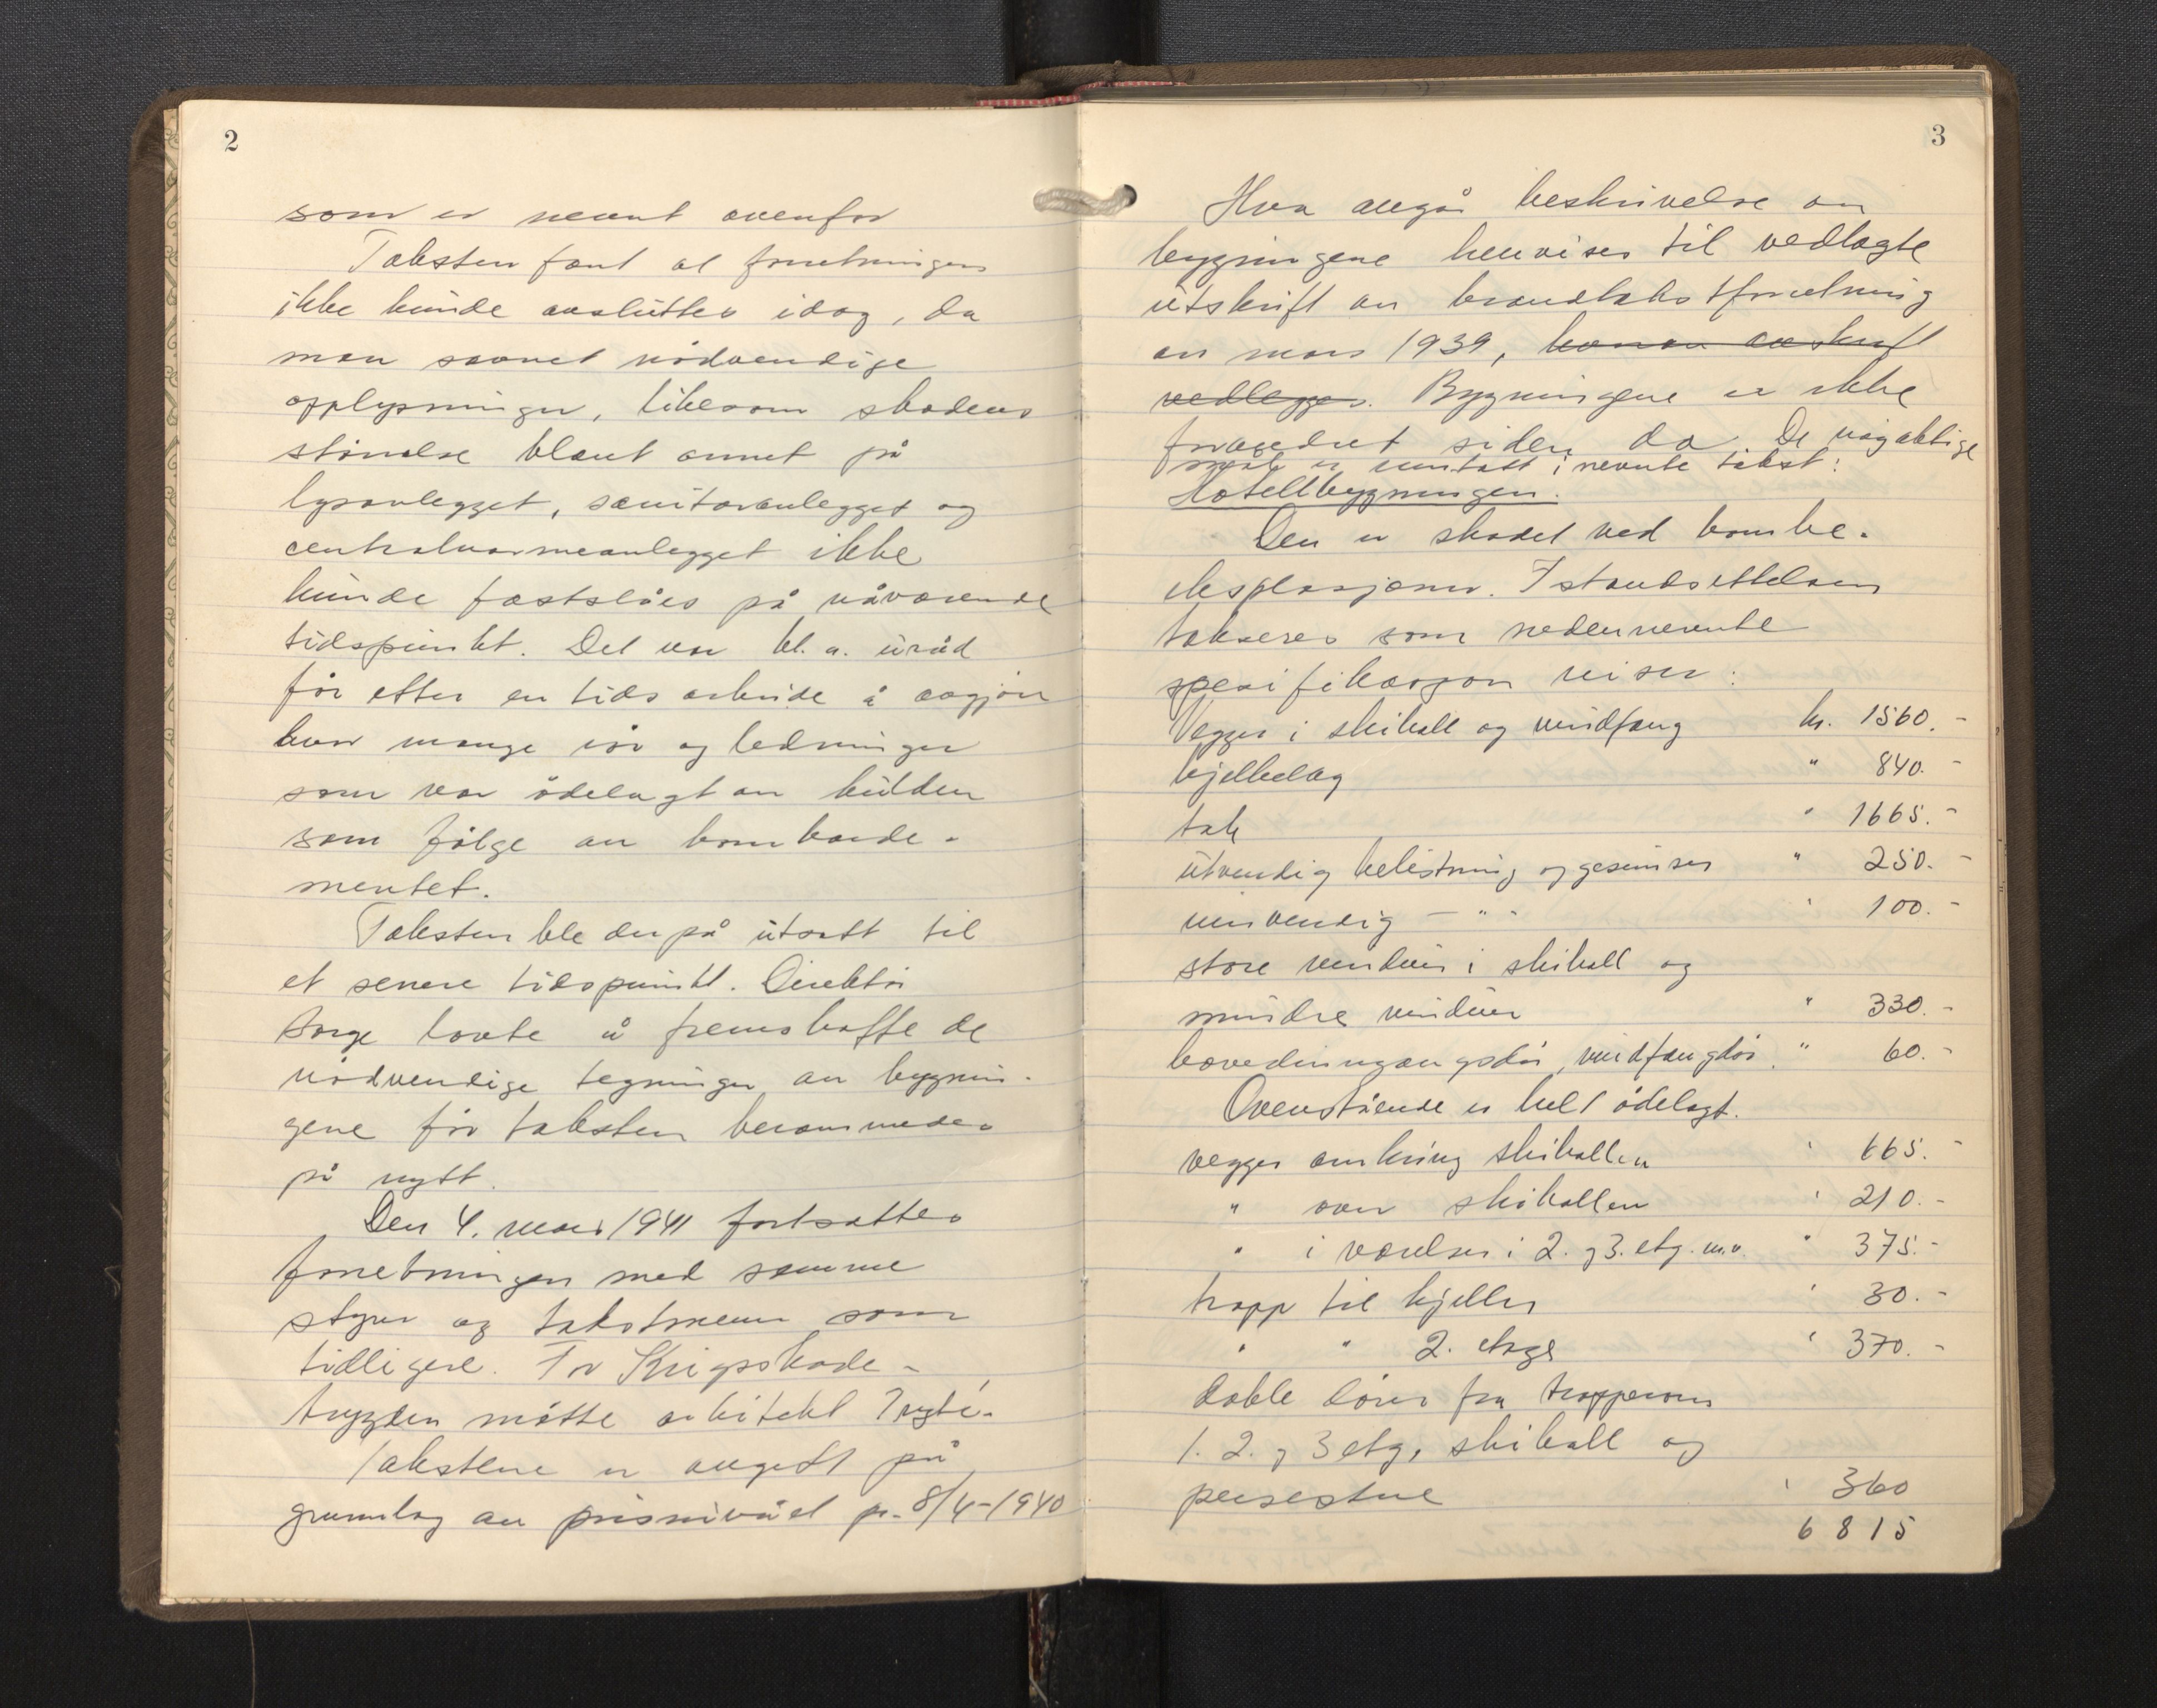 2
som er nevnt ovenfor
Taksten fant at forretningen
ikke kunde avsluttes idag, da
man savnet nødvendige
opplysninger, likesom skadens
størrelse blant annet på
lysanlegget, sanitæranlegget og
centralvarmeanlegget ikke
kunde fastslåes på nåværende
tidspunkt. Det var bl. a. uråd
før efter en tids arbeide å avgjøre
hvor mange rør og ledninger
som var ödelagt av kulden
som følge av bombarde-
mentet.
Taksten ble derpå utsatt til
et senere tidspunkt. Direktør
lovte å fremskaffe de
nødvendige tegninger av bygnin-
gene før taksten berammedes
på nytt.
Den 4. mars 1941 fortsattes
forretningen med samme
styrer og takstmenn som
tidligere. For Krigsskade-
trygden møtte arkitekt
Takstene er avgitt på
grunnlag av prisnivået pr. 8/4-1940
3
Hva angår beskrivelse av
bygningene henvises til vedlagte
utskrift av brandtakstforretning
av mars 1939, hvorav avskrift
vedlegges. Bygningene er ikke
forandret siden da. De nøyaktige
mål er inntatt i nevnte takst:
Hotellbygningen.
Den er skadet ved bombe-
eksplosjoner. Istandsettelsen
takseres som nedennevnte
spesifikasjon viser:
Vegger i skihall og vindfang kr. 1560.-
bjelkelag " 840.-
tak " 1665.-
utvendig belistning og gesimser " 250.-
innvendig - " " " 100.-
store vinduer i skihall og
mindre vinduer " 330.-
hovedinngangsdør, vindfangdør. " 60.-
Ovenstående er helt ödelagt.
vegger omkring skihallen " 665.-
" over skihallen " 210.-
" i værelser i 2. og 3. etg. m.v. " 375.-
trapp til kjeller " 30.-
" " 2. etage " 370.-
doble dører fra trapperom
1. 2. og 3 etg, skihall og
peisestue " 360
6815